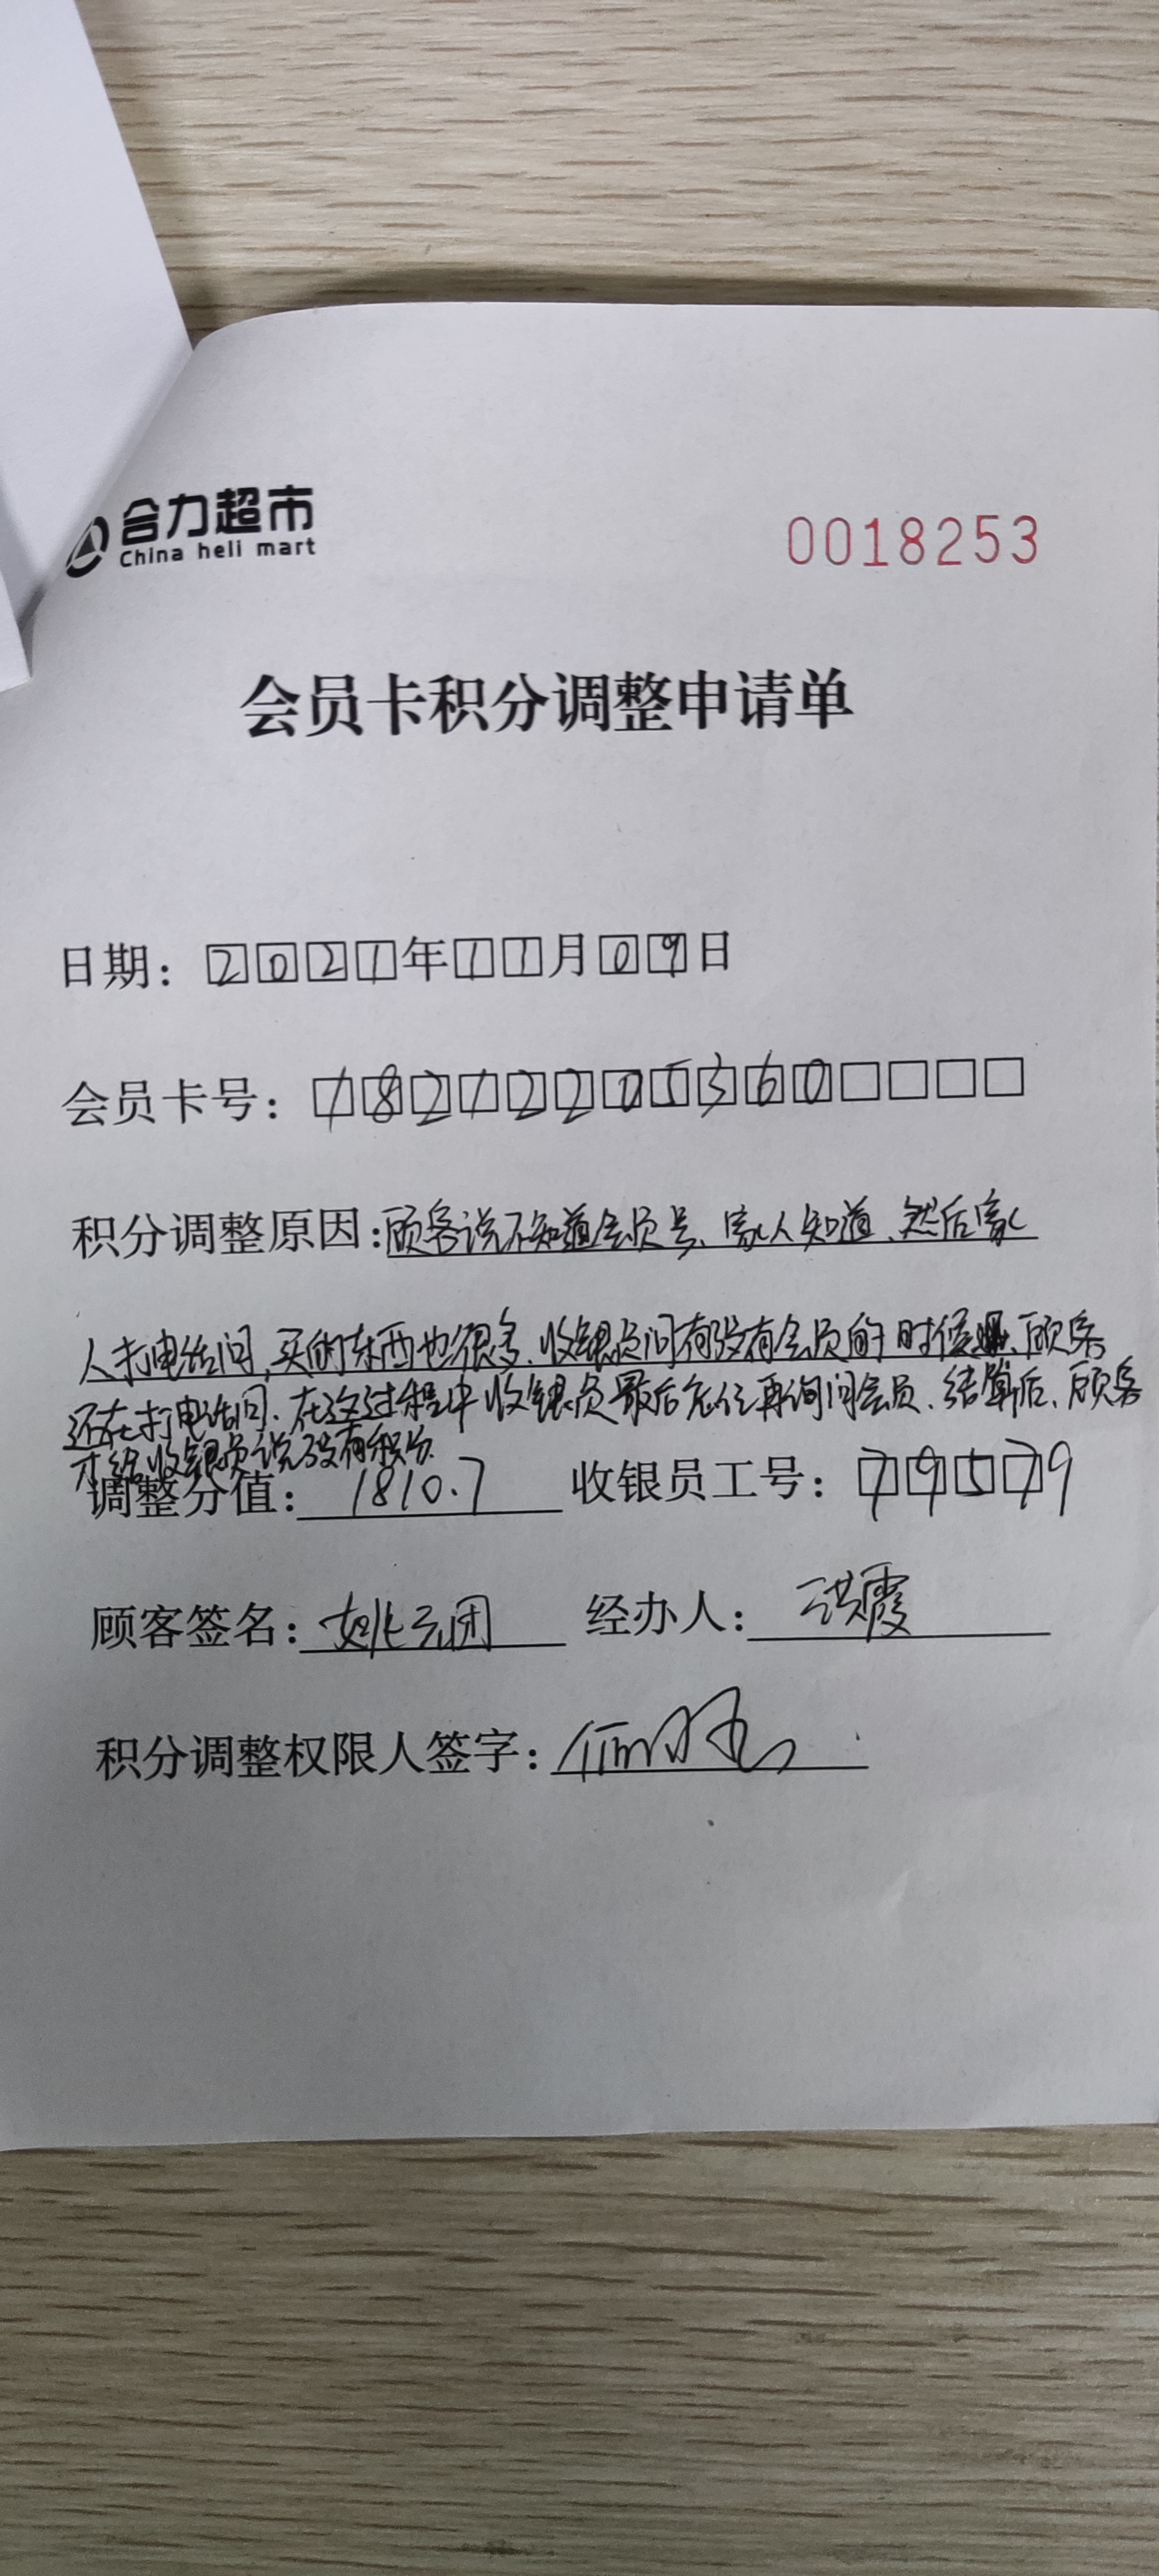 合力超市
China heli mart
0018253
会员卡积分调整申请单
日期：2021年11月09日
会员卡号：18212205360
积分调整原因：顾客说不知道会员号、家人知道、然后家
人打电话问，买的东西也很多、收银员问有没有会员的时候、顾客
还在打电话问、在这过程中收银员最后忘记再询问会员、结算后、顾客
才给收银员说没有积分
调整分值：1810.7 收银员工号：79579
顾客签名：姚云团 经办人：洪霞
积分调整权限人签字：